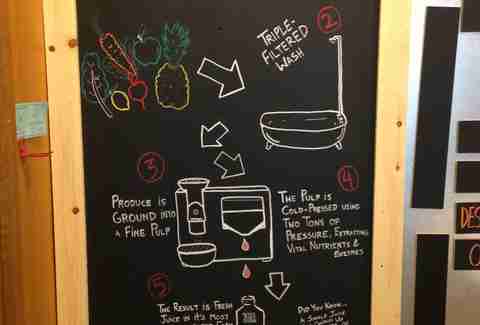 2
TRIPLE-
FILTERED
WASH
3
PRODUCE IS
GROUND INTO
A FINE PULP
4
THE PULP IS
COLD-PRESSED USING
TWO TONS OF
PRESSURE, EXTRACTING
VITAL NUTRIENTS &
ENZYMES
5
THE RESULT IS FRESH
JUICE IN IT'S MOST
DID YOU KNOW...
A SINGLE JUICE
DES